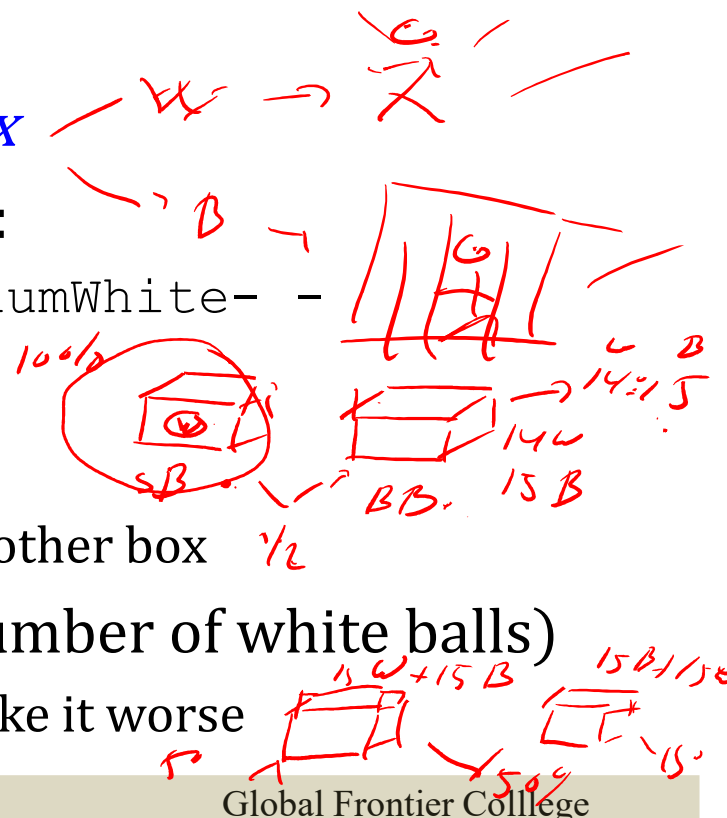 x
W → G
B
:
umWhite- -
100%
W B
14:15
W
14W
SB
BB.
15 B
other box 1/2
umber of white balls)
15 W + 15 B
15B+15
ke it worse
50%
Global Frontier Colllege